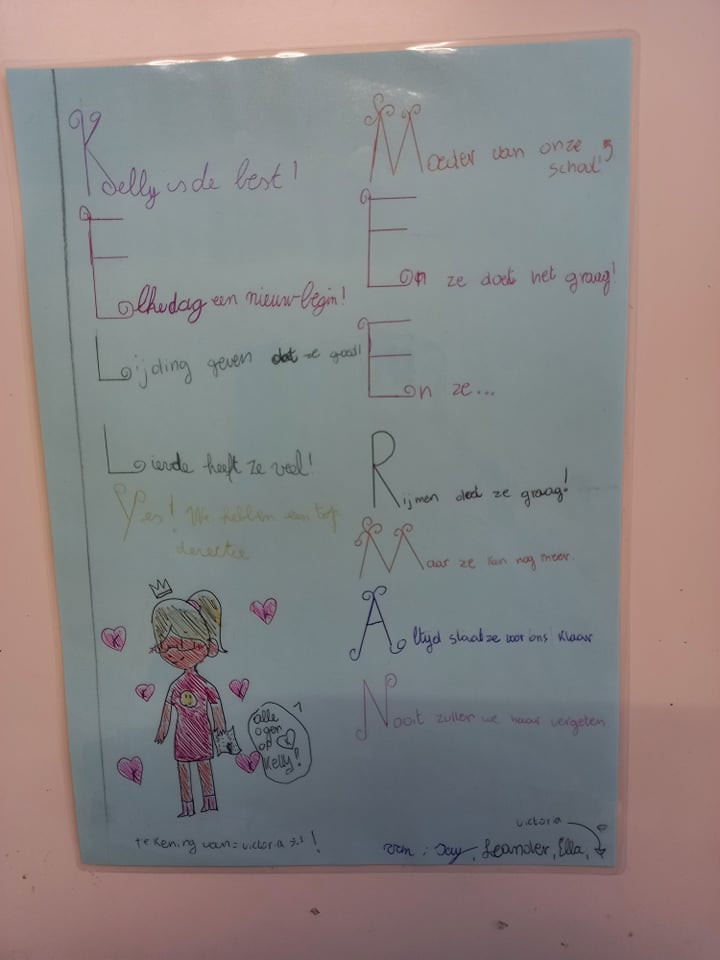 Kelly is de best!
Elke dag een nieuw begin!
Lijding geven doet ze goed!
Lievde heeft ze veel!
Yes! We hebben een top
derectie
Moeder van onze
school!
En ze doet het graag!
En ze...
Rijmen doet ze graag!
Maar ze kan nog meer.
Altyd staat ze voor ons klaar
Nooit zullen we haar vergeten.
K
K
K
K
K
K
alle
ogen
op
Kelly!
tekening van: victoria !
victoria
van: Jay, Leander, Ella,